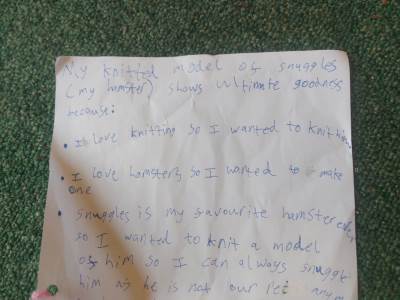 My knitted model of snuggles
(my hamster) shows ultimate goodness
because:
• I love knitting so I wanted to knit him.
• I love hamsters so I wanted to make
one
• snuggles is my favourite hamster ever
so I wanted to knit a model
of him so I can always snuggle
him as he is not our